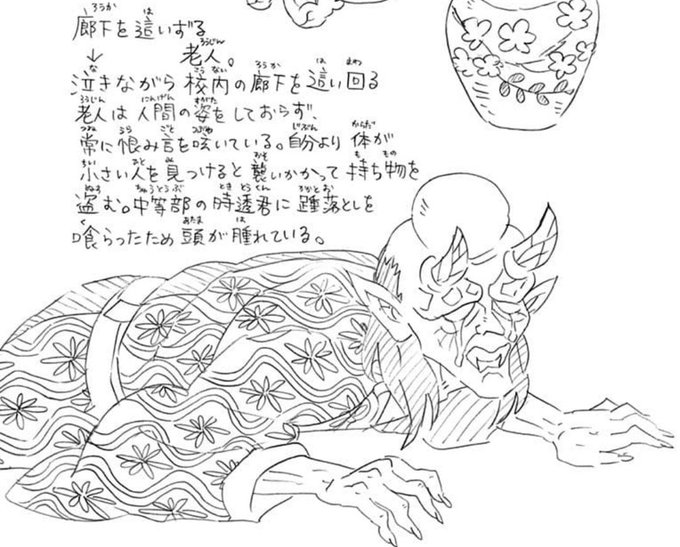 廊下を這いずる
老人。
↓
泣きながら校内の廊下を這い回る
老人は人間の姿をしておらず、
常に恨み言を呟いている。自分より体が
小さい人を見つけると襲いかかって持ち物を
盗む。中等部の時透君に踵落としを
喰らったため頭が腫れている。